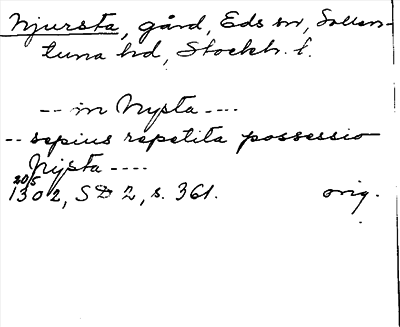 Njursta, gård, Eds sn, Sollen-
tuna hd, Stockh. l.
-- in Nysta ----
-- sepius repetita possessio
Nijsta ----
20/5
1302, SD 2, s. 361. orig.